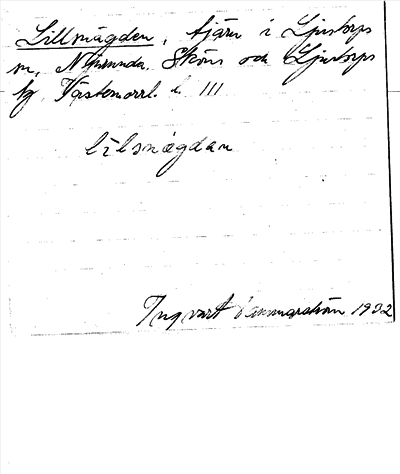 Lillmägden, tjärn i Ljustorps
sn, Njurunda Sköns och Ljustorps
tg Västernorrl. l. III
lilsmägdan
Ingvart 1932